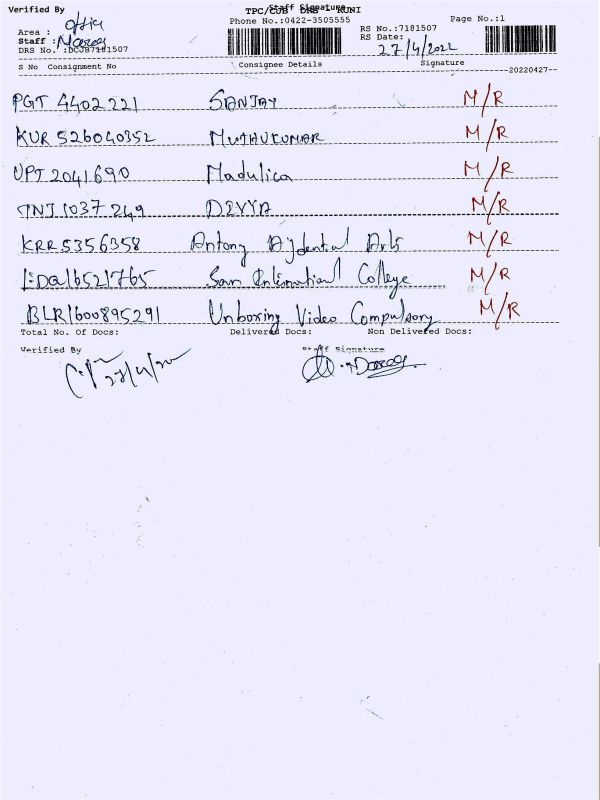 Verified By Staff Signature
TPC/CJB DRS - KUNI
Phone No.:0422-3505555 Page No.:1
Area : Office RS No.:7181507
Staff : RS Date: 27/4/2022
DRS No.:DCJB7181507
S No Consignment No Consignee Details Signature
20220427
PGT 4402221 SANJAY M/R
KUR 526040352 MUTHUKUMAR M/R
UPT 2041690 Madulica M/R
TNJ 1037249 DIVYA M/R
KRR 5356358 Antony Ajdental Arts M/R
EDQ16521765 Sam International College M/R
BLR1600895291 Unboxing Video Compulsory M/R
Total No. Of Docs: Delivered Docs: Non Delivered Docs:
Verified By Staff Signature
27/4/22